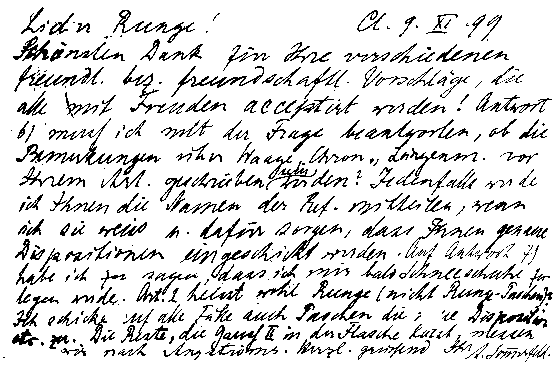 Lieber Runge! Cl. 9. XI. 99
Schönsten Dank für Ihre verschiedenen
freundl. bez. freundschaftl. Vorschläge, die
alle mit Freuden acceptirt werden! Antwort
6) muss ich mit der Frage beantworten, ob die
Bemerkungen über Waage, Chron., Längenm. vor
Ihrem Art. geschrieben werden? Jedenfalls werde
ich Ihnen die Namen der Ref. mittheilen, wenn
ich sie weiss u. dafür sorgen, dass Ihnen genaue
Dispositionen eingeschickt werden. Auf Antwort 7)
habe ich zu sagen, dass ich mir bald Schneeschuhe zu-
legen werde. Art. 2 heisst wohl Runge (nicht Runge-Paschen)?
Ich schicke auf alle Fälle auch Paschen die Disposition
etc. zu. Die Reste, die Gauss II in der Flasche lässt, müssen
wir nach grüssend Ihr A. Sommerfeld.